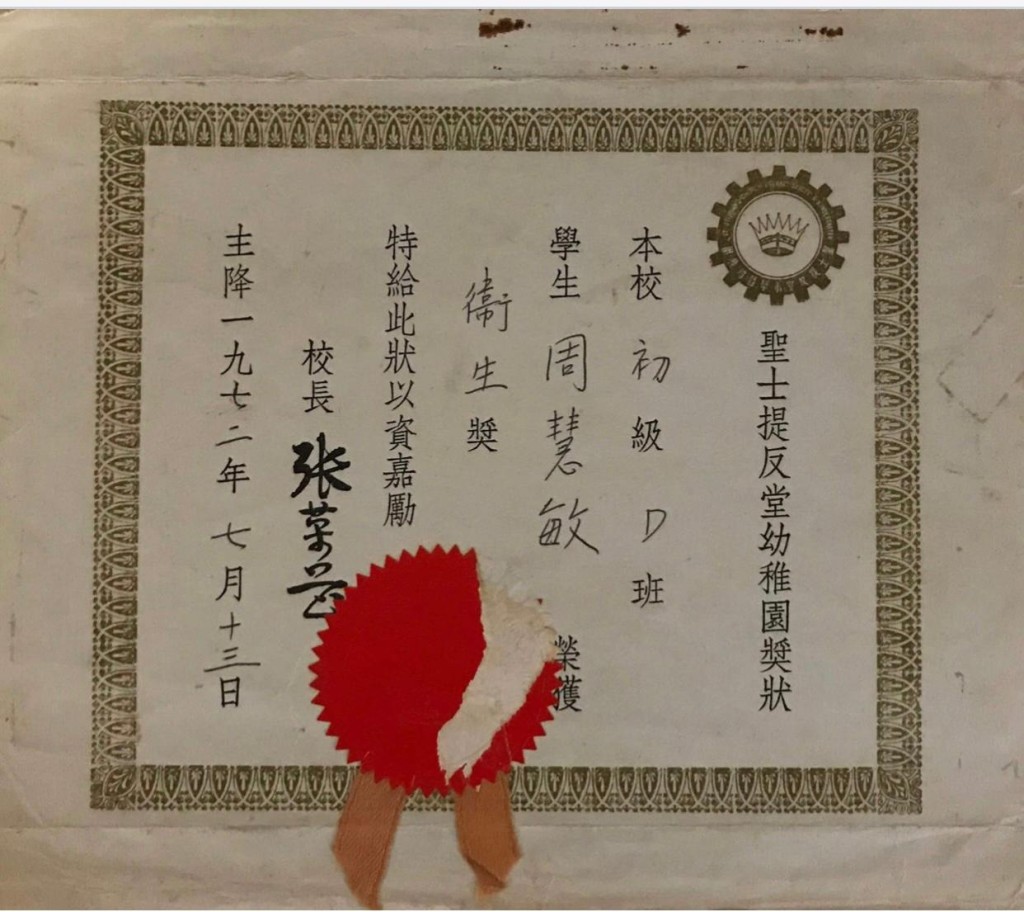 聖士提反堂幼稚園奬狀
本校初級D班
學生周慧敏榮獲
衞生奬
特給此狀以資嘉勵
校長張
主降一九七二年七月十三日